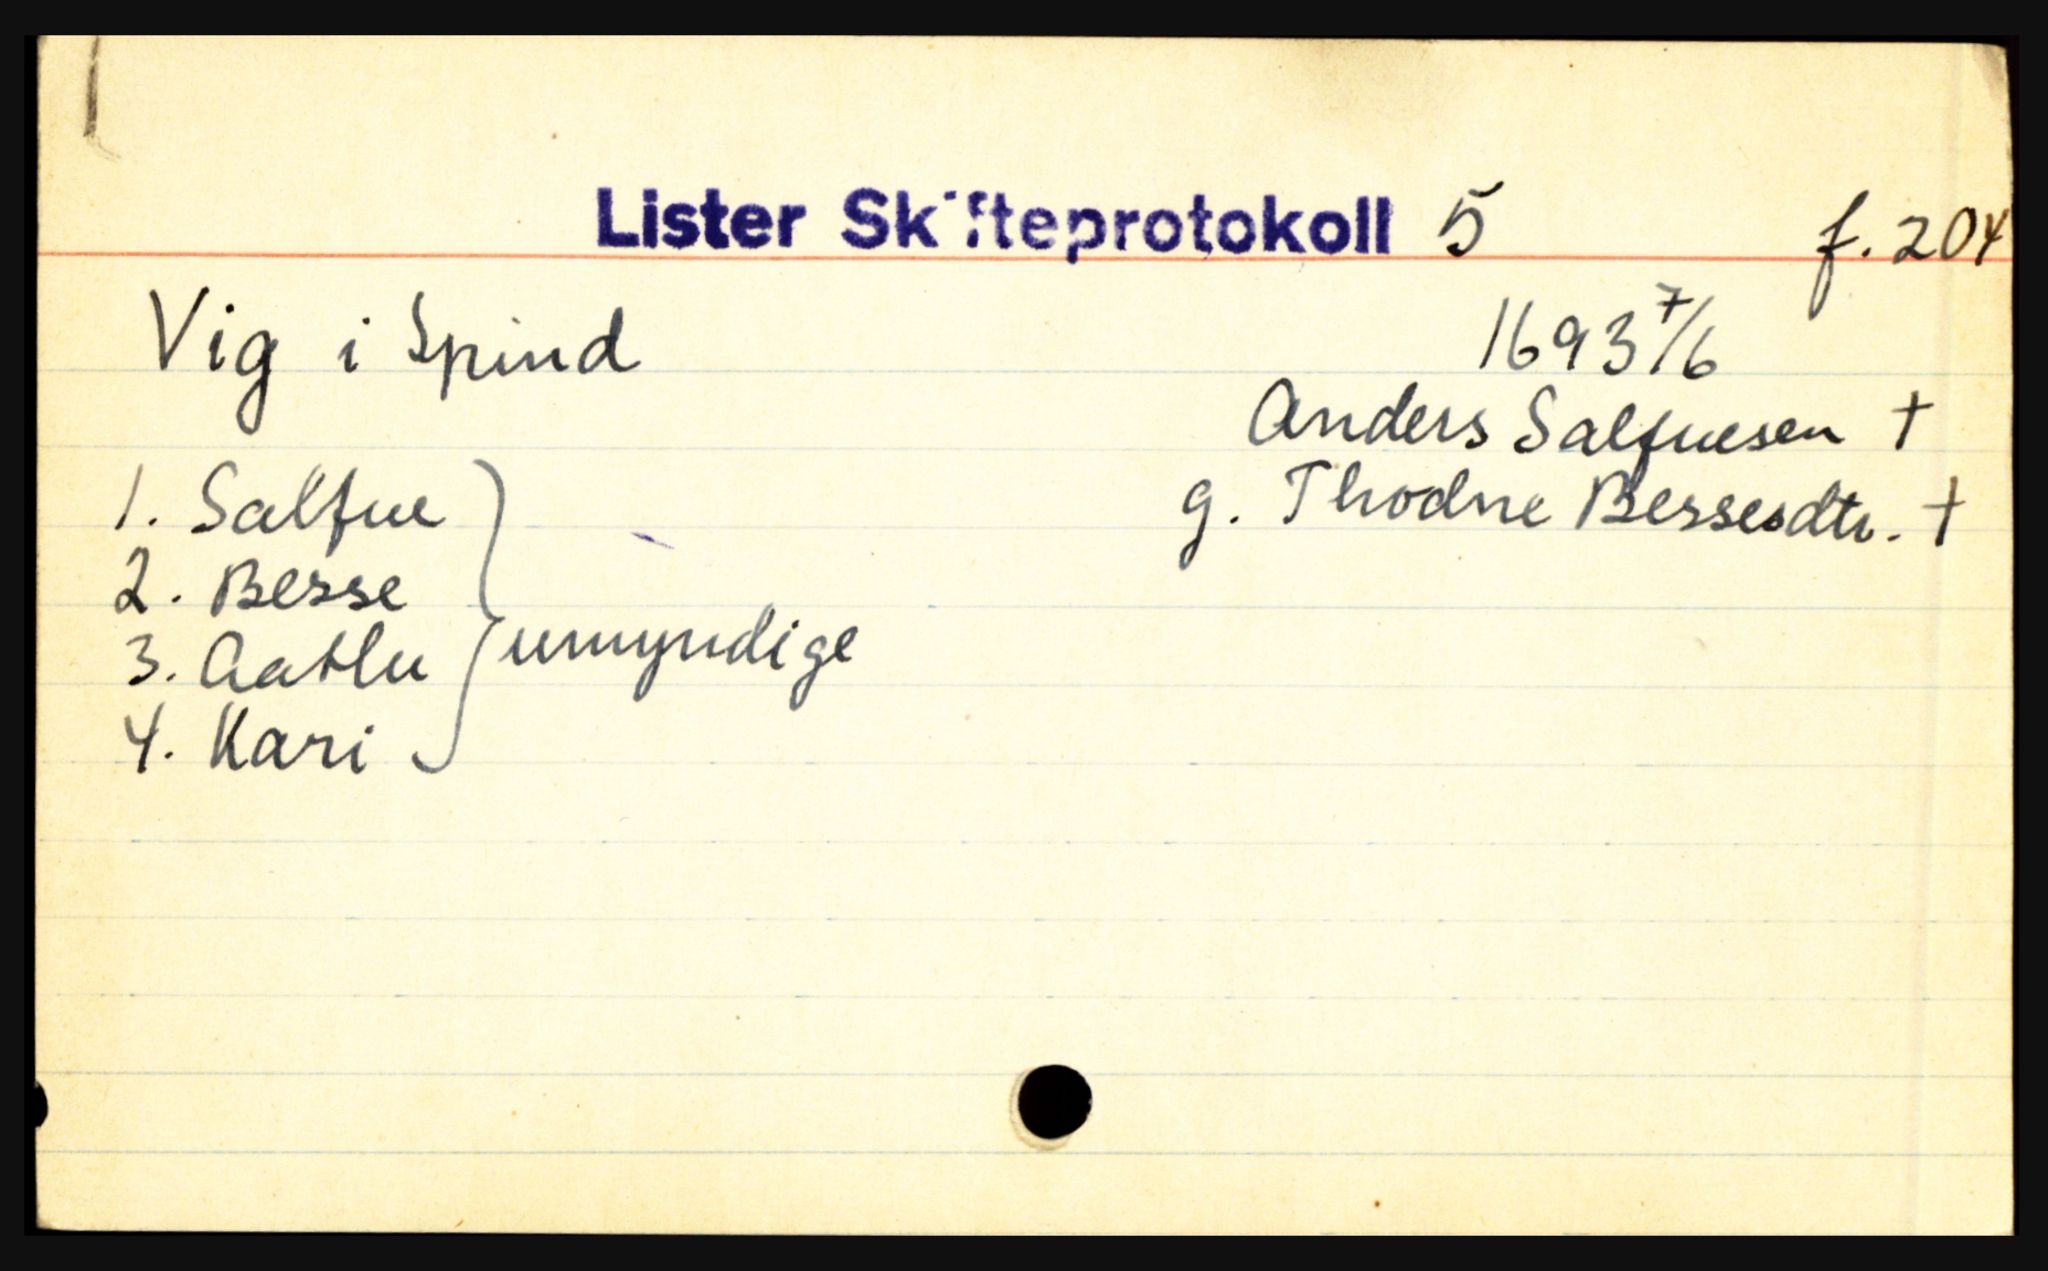 Lister Skifteprotokoll 5 f. 204
Vig i Spind 1693 7/6
Anders Salfuesen †
g. Thodne Bessesdtr. †
1. Salfue
2. Besse
3. Aatlu
4. Kari
umyndige